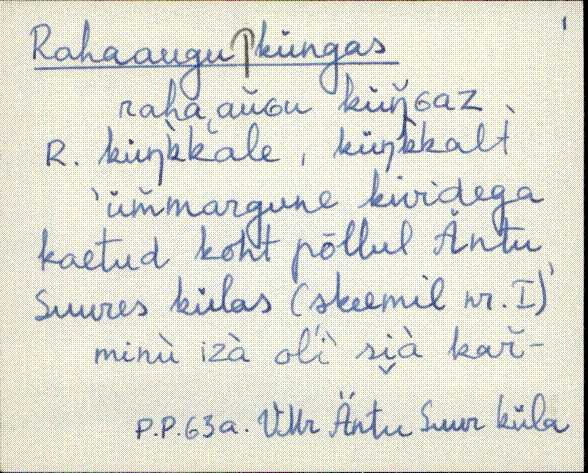 1
Rahaaugu|küngas
raha͕ aŭɢu küŋ̆ɢaz
R. küŋk̀kale, küŋk̀kalt̀
ˋüm̆margune kividega
kaetud koht põllul Äntu
Suures külas (skeemil nr. I)
minù izà olì siìà kař-
P.P. 63a. VMr Äntu Suur küla